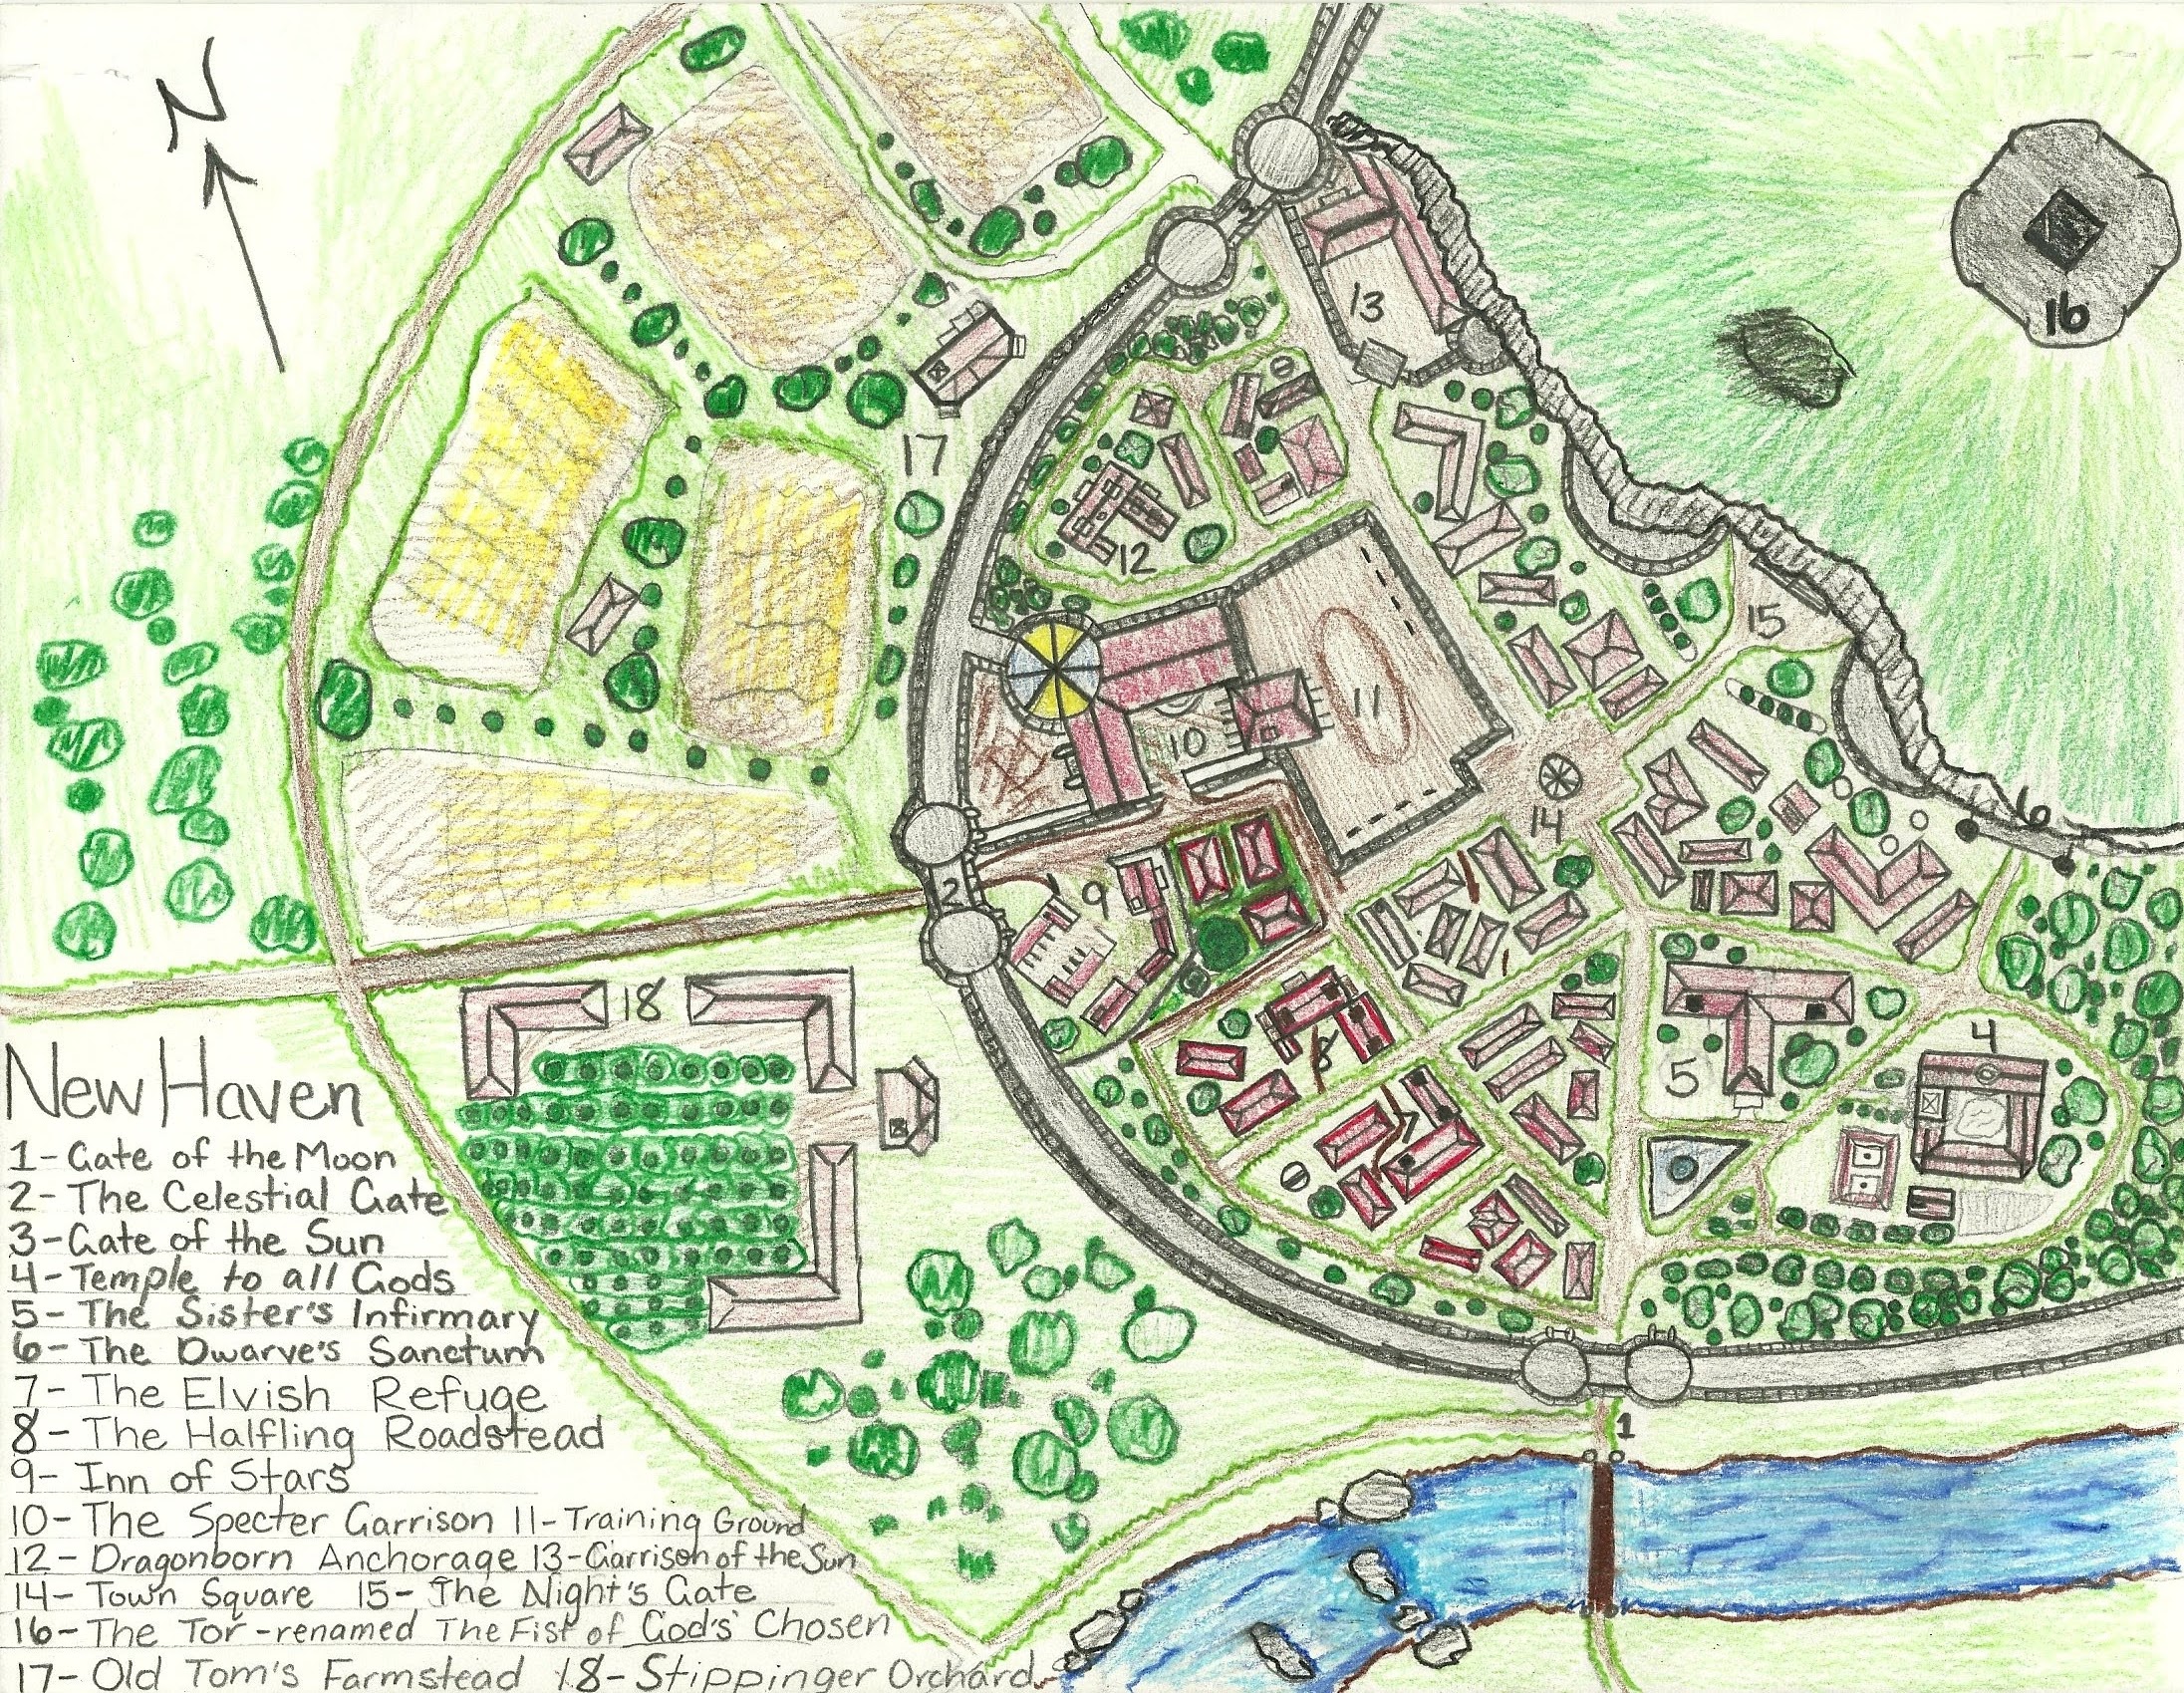 N
3
13
16
17
12
15
11
10
14
6
2
9
18
4
8
5
7
1
New Haven
1-Gate of the Moon
2-The Celestial Gate
3-Gate of the Sun
4-Temple to all Gods
5-The Sister's Infirmary
6-The Dwarve's Sanctum
7-The Elvish Refuge
8-The Halfling Roadstead
9-Inn of Stars
10-The Specter Garrison 11-Training Ground
12-Dragonborn Anchorage 13-Garrison of the Sun
14-Town Square 15-The Night's Gate
16-The Tor-renamed The Fist of God's Chosen
17-Old Tom's Farmstead 18-Stippinger Orchard